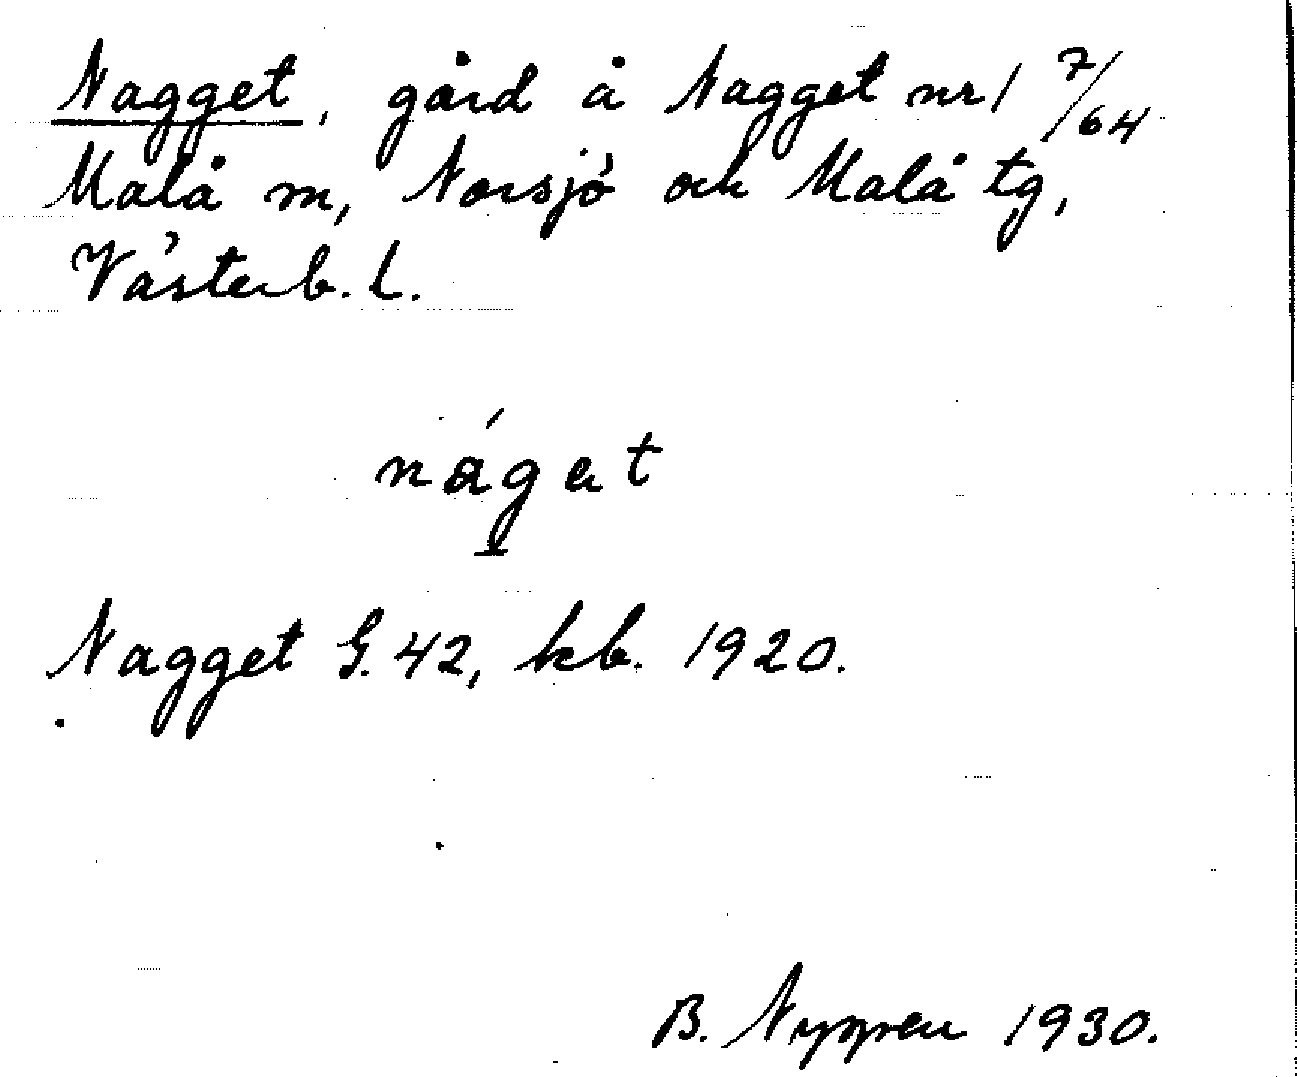 Nagget, gård å Nagget nr 1 7/64
Malå sn, Norsjö och Malå tg,
Västerb. l.
nágat
Nagget G. 42, kb. 1920.
B. Nygren 1930.